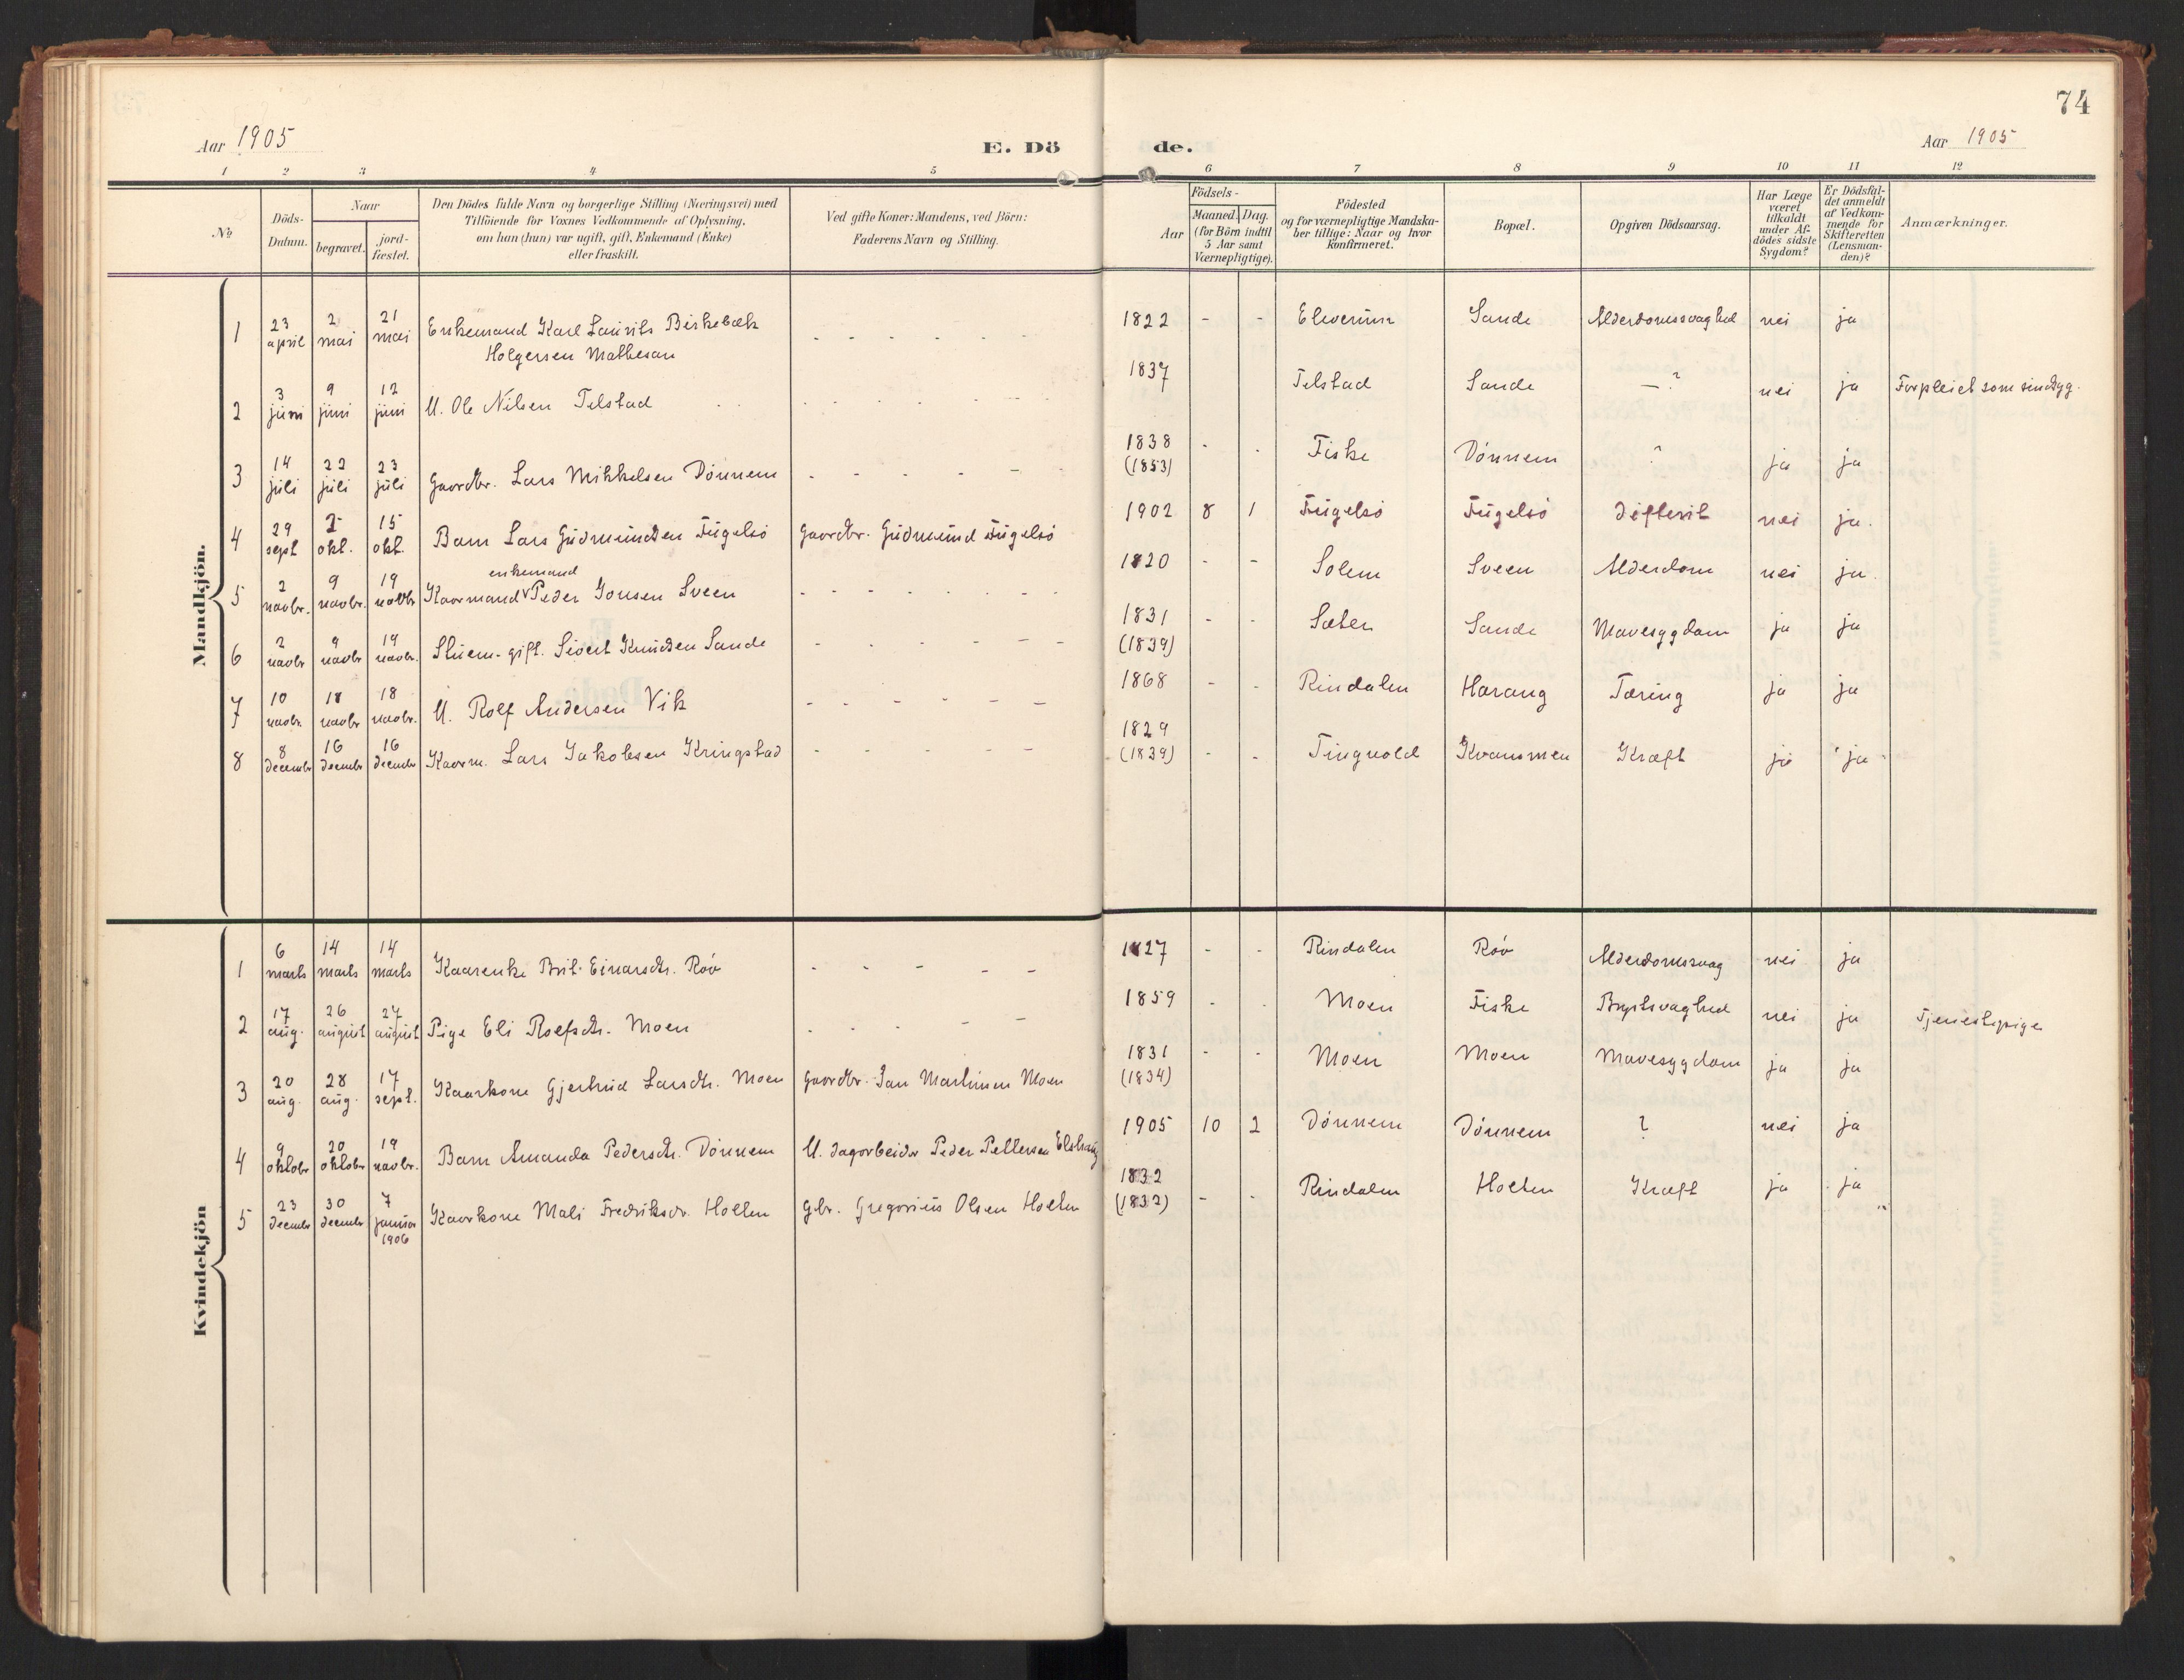 74
Aar 1905
E. Dö de.
Aar 1905
1 2 3 4 5 6 7 8 9 10 11 12
No
Döds-Datum.
Naar
begravet.
jord-fæstet.
Den Dödes fulde Navn og borgerlige Stilling (Næringsvei) med
Tilföiende for Voxnes Vedkommende af Oplysning,
om han (hun) var ugift, gift, Enkemand (Enke)
eller fraskilt.
Ved gifte Koner: Mandens, ved Börn:
Faderens Navn og Stilling.
Födsels-
Aar
Maaned. Dag.
(for Börn indtil
5 Aar samt
Værnepligtige).
Födested
og for værnepligtige Mandska-
ber tillige: Naar og hvor
Konfirmeret.
Bopæl.
Opgiven Dödsaarsag.
Har Læge
været
tilkaldt
under Af-
dödes sidste
Sygdom?
Er Dödsfal-
det anmeldt
af Vedkom-
mende for
Skifteretten
(Lensman-
den)?
Anmærkninger.
Mandkjön.
1 23 april 2 mai 21 mai Enkemand Karl Laurits Birkebæk - - - - - - 1822 - - Elverum Sande Alderdomssvaghed nei ja
Holgersen Mathesan
2 3 juni 9 juni 12 juni U. Ole Nilsen Telstad - - - - - - 1837 Telstad Sande — ? nei ja Forpleiet som sindsyg.
3 14 juli 22 juli 23 juli Gaardbr. Lars Mikkelsen Dönnem - - - - - - 1838 (1853) - - Fiske Dönnem ? ja ja
4 29 sept 5 okt. 15 okt. Barn Lars Gudmundsen Fugelsö Gaardbr. Gudmund Fugelsö 1902 8 1 Fugelsö Fugelsö Difterit nei ja.
enkemand
5 2 novbr. 9 novbr. 19 novbr Kaarmand Peder Jonsen Sveen - - - - - - 1820 - - Solem Sveen Alderdom nei ja.
6 2 novbr 9 novbr 19 novbr. Stuem. gift. Sivert Knudsen Sande - - - - - 1831 (1839) - - Sæter Sande Mavesygdom ja ja
7 10 novbr. 18 novbr 18 novbr. U. Rolf Andersen Vik - - - - - 1868 - - Rindalen Harang Tæring ja ja
8 8 decembr 16 decembr 16 decembr Kaarm. Lars Jakobsen Kringstad - - - - - 1829 (1839) - - Tingvold Kvammen Kræft ja ja
Kvindekjön
1 6 marts 14 marts 14 marts Kaarenke Brit Einarsdtr. Röv - - - - - 1827 - - Rindalen Röv Alderdomssvag nei ja
2 17 aug. 26 august 27 august Pige Eli Roefsdtr. Moen - - - - - 1859 - - Moen Fiske Brystsvaghed nei ja Tjenestepige
3 20 aug. 28 aug. 17 sept. Kaarkone Gjertrud Larsdtr. Moen Gaardbr. Jan Martinsen Moen 1831 (1834) - - Moen Moen Mavesygdom ja ja
4 9 oktobr 20 oktobr 19 novbr. Barn Amanda Pedersdtr. Dönnem U. dagarbeider Peder Pettersen 1905 10 2 Dönnem Dönnem ? nei ja
5 23 decembr 30 decembr 7 januar 1906 Kaarkone Mali Fredriksdr. Holten Gbr. Gregorius Olsen Holten 1832 (1832) - - Rindalen Holten Kræft ja ja